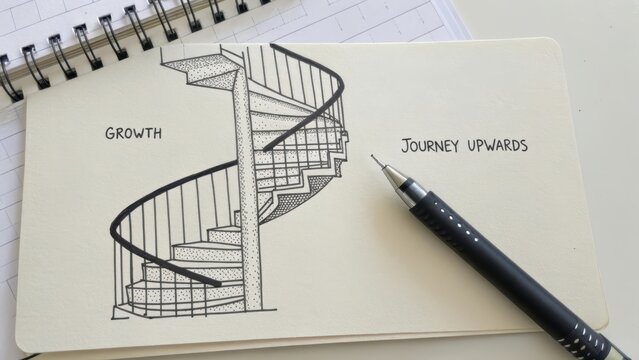 GROWTH
JOURNEY UPWARDS